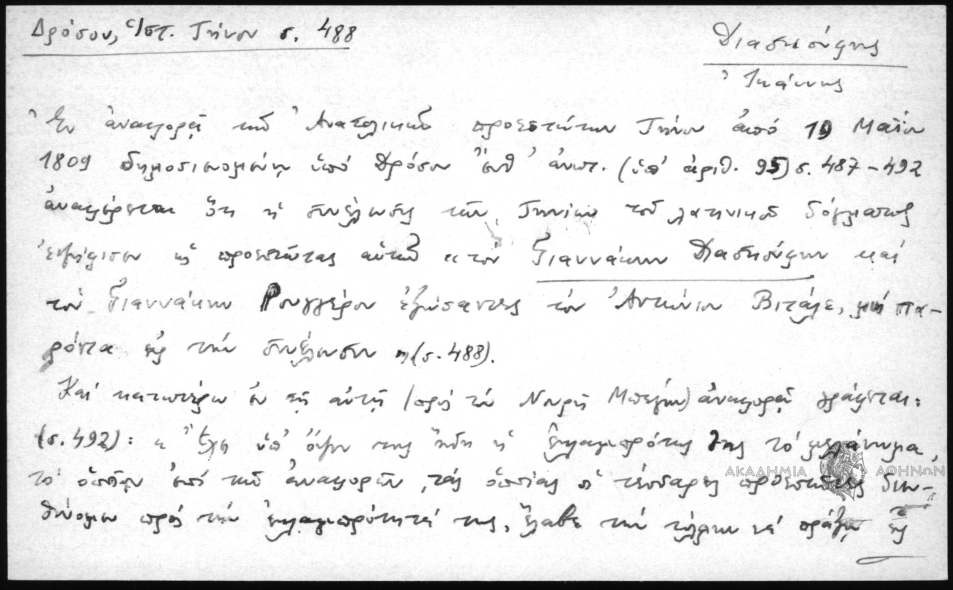 Δρόσου, Ἱστ. Τήνου σ. 488
Διασκούφης
Ἰωάννης
Ἐν ἀναφορᾷ τῶν Ἀνατολικῶν προεστώτων Τήνου ἀπό 19 Μαΐου
1809 δημοσιευομένῃ ὑπό Δρόσου ἔνθ' ἀνωτ. (ὑπ' ἀριθ. 95) σ. 487-492
ἀναφέρεται ὅτι ἡ συνέλευσις τῶν Τηνίων τοῦ λατινικοῦ δόγματος
ἐψήφισεν ὡς προεστῶτας αὐτῶν «τὸν Γιαννάκην Διασκούφην καί
τὸν Γιαννάκην Ρουγγέρον ἐξώσαντες τὸν Ἀντώνιον Βιτάλε, μή πα-
ρόντα εἰς τὴν συνέλευσιν» (σ. 488).
Καί κατωτέρω ἐν τῇ αὐτῇ (πρός τὸν Νουρῆ Μπέγην) ἀναφορᾷ γράφεται:
(σ. 492): « Ἔχει ὑπ' ὄψιν της ἤδη ἡ ἐκλαμπρότης της τὸ
τὸ ὁποῖον ἀπό τῶν ἀναφορῶν, τάς ὁποίας οἱ τέσσαρες προεστῶτες διευ-
θύνομεν πρός τὴν ἐκλαμπρότητά της, ἔλαβε τὴν τόλμην νά πράξῃ εἰς
ΑΚΑΔΗΜΙΑ ΑΘΗΝΩΝ